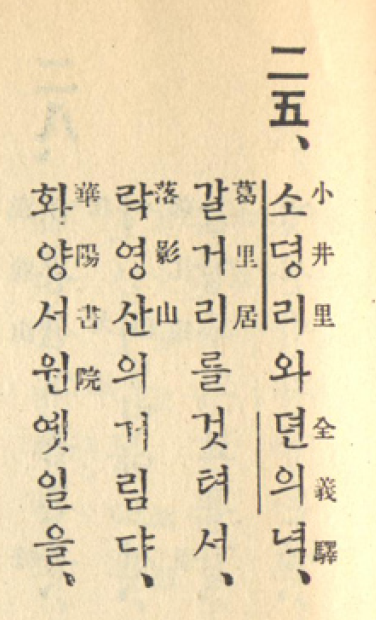 二五、
小井里 全義驛
소뎡리와뎐의녁、
葛里居
갈거리를것텨서、
落影山
락영산의거림댜、
華陽書院
화양서원옛일을、